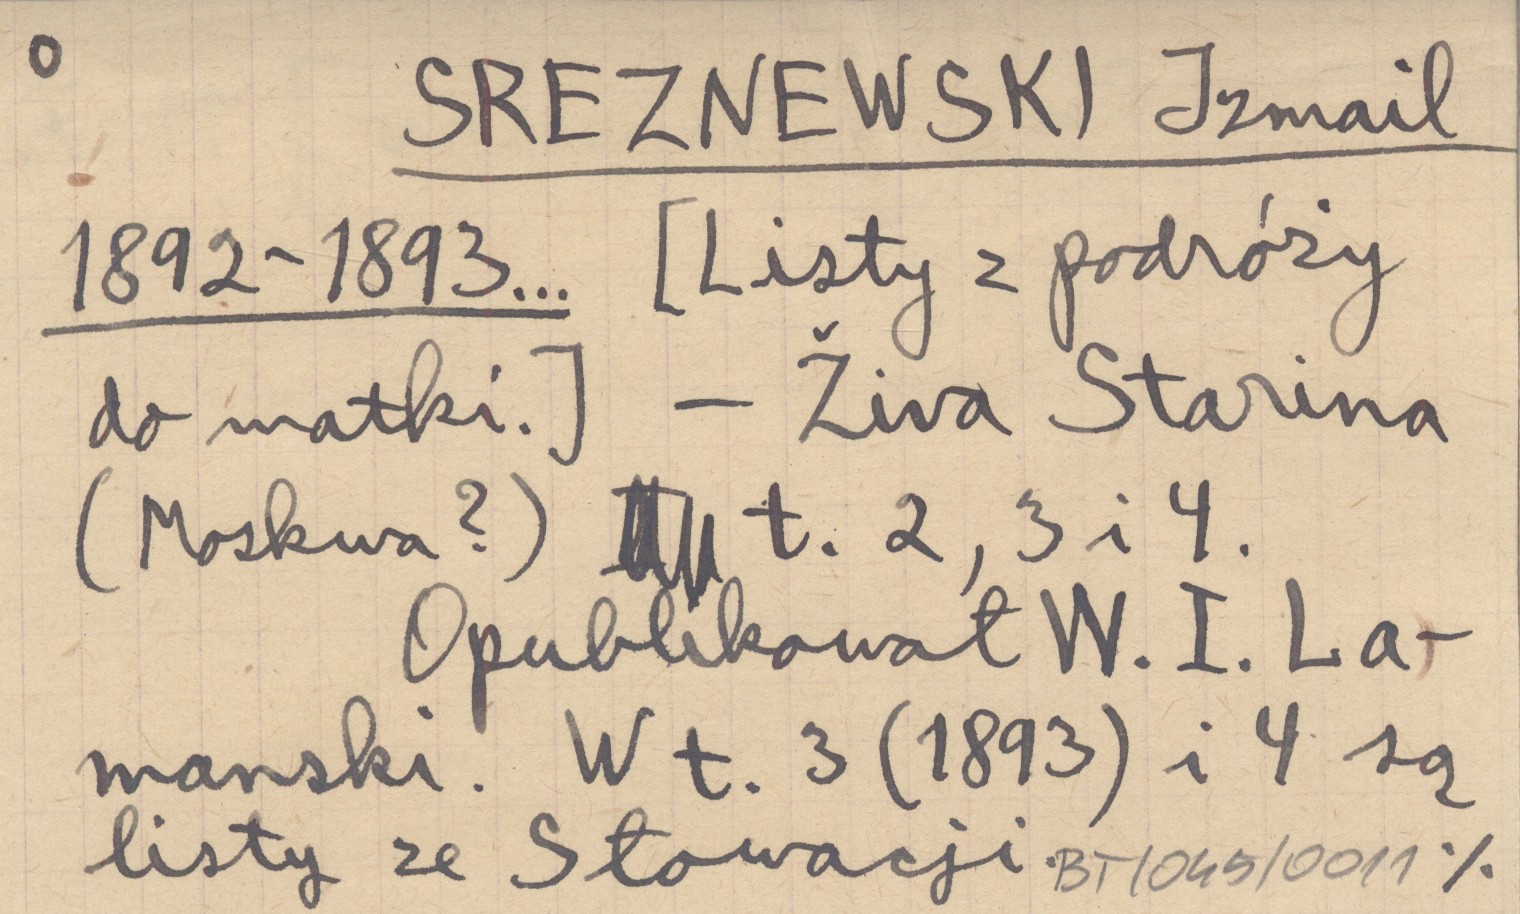 o
SREZNEWSKI Izmail
1892-1893... [Listy z podróży
do matki.] — Živa Starina
(Moskwa?) t. 2, 3 i 4.
Opublikował W. I. La-
manski. W t. 3 (1893) i 4 są
listy ze Słowacji.
BT/045/0011 ·/.